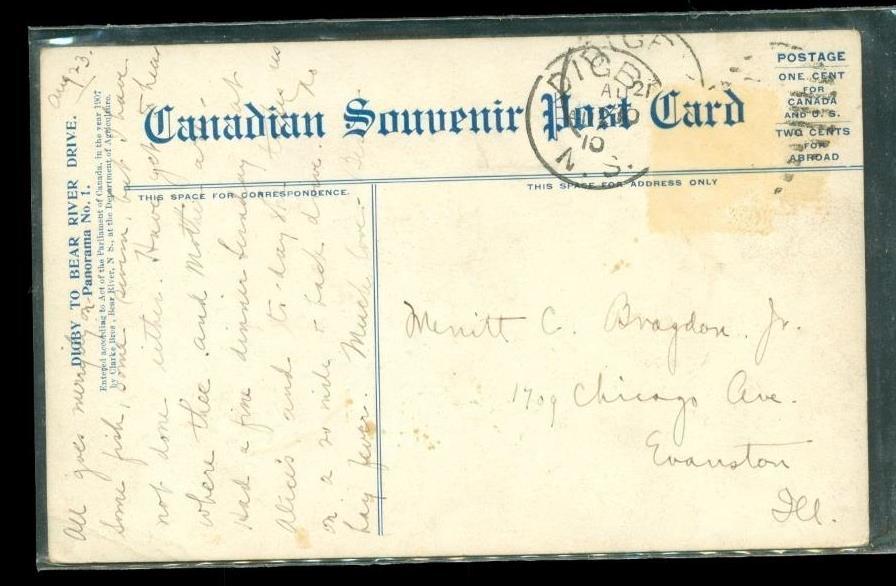 Canadian Souvenir Post Card
POSTAGE
ONE CENT
FOR
CANADA
AND U. S.
TWO CENTS
FOR
ABROAD
DIGBY
AU 21
10
N. S.
THIS SPACE FOR CORRESPONDENCE.
THIS SPACE FOR ADDRESS ONLY
DIGBY TO BEAR RIVER DRIVE.
Panorama No. 1.
Entered according to Act of the Parliament of Canada, in the year 1907
by Clarke Bros., Bear River, N. S., at the Department of Agriculture.
Aug 23.
All goes merrily on
Some fish, some swim, but I have
not done either. Have yet to hear
where thee and Mother
Had a fine dinner Sunday at
Alice's and to-day
on a 20 mile back drive. No
hay fever. Much love.
Merritt C. Bragdon Jr.
1709 Chicago Ave.
Evanston
Ill.